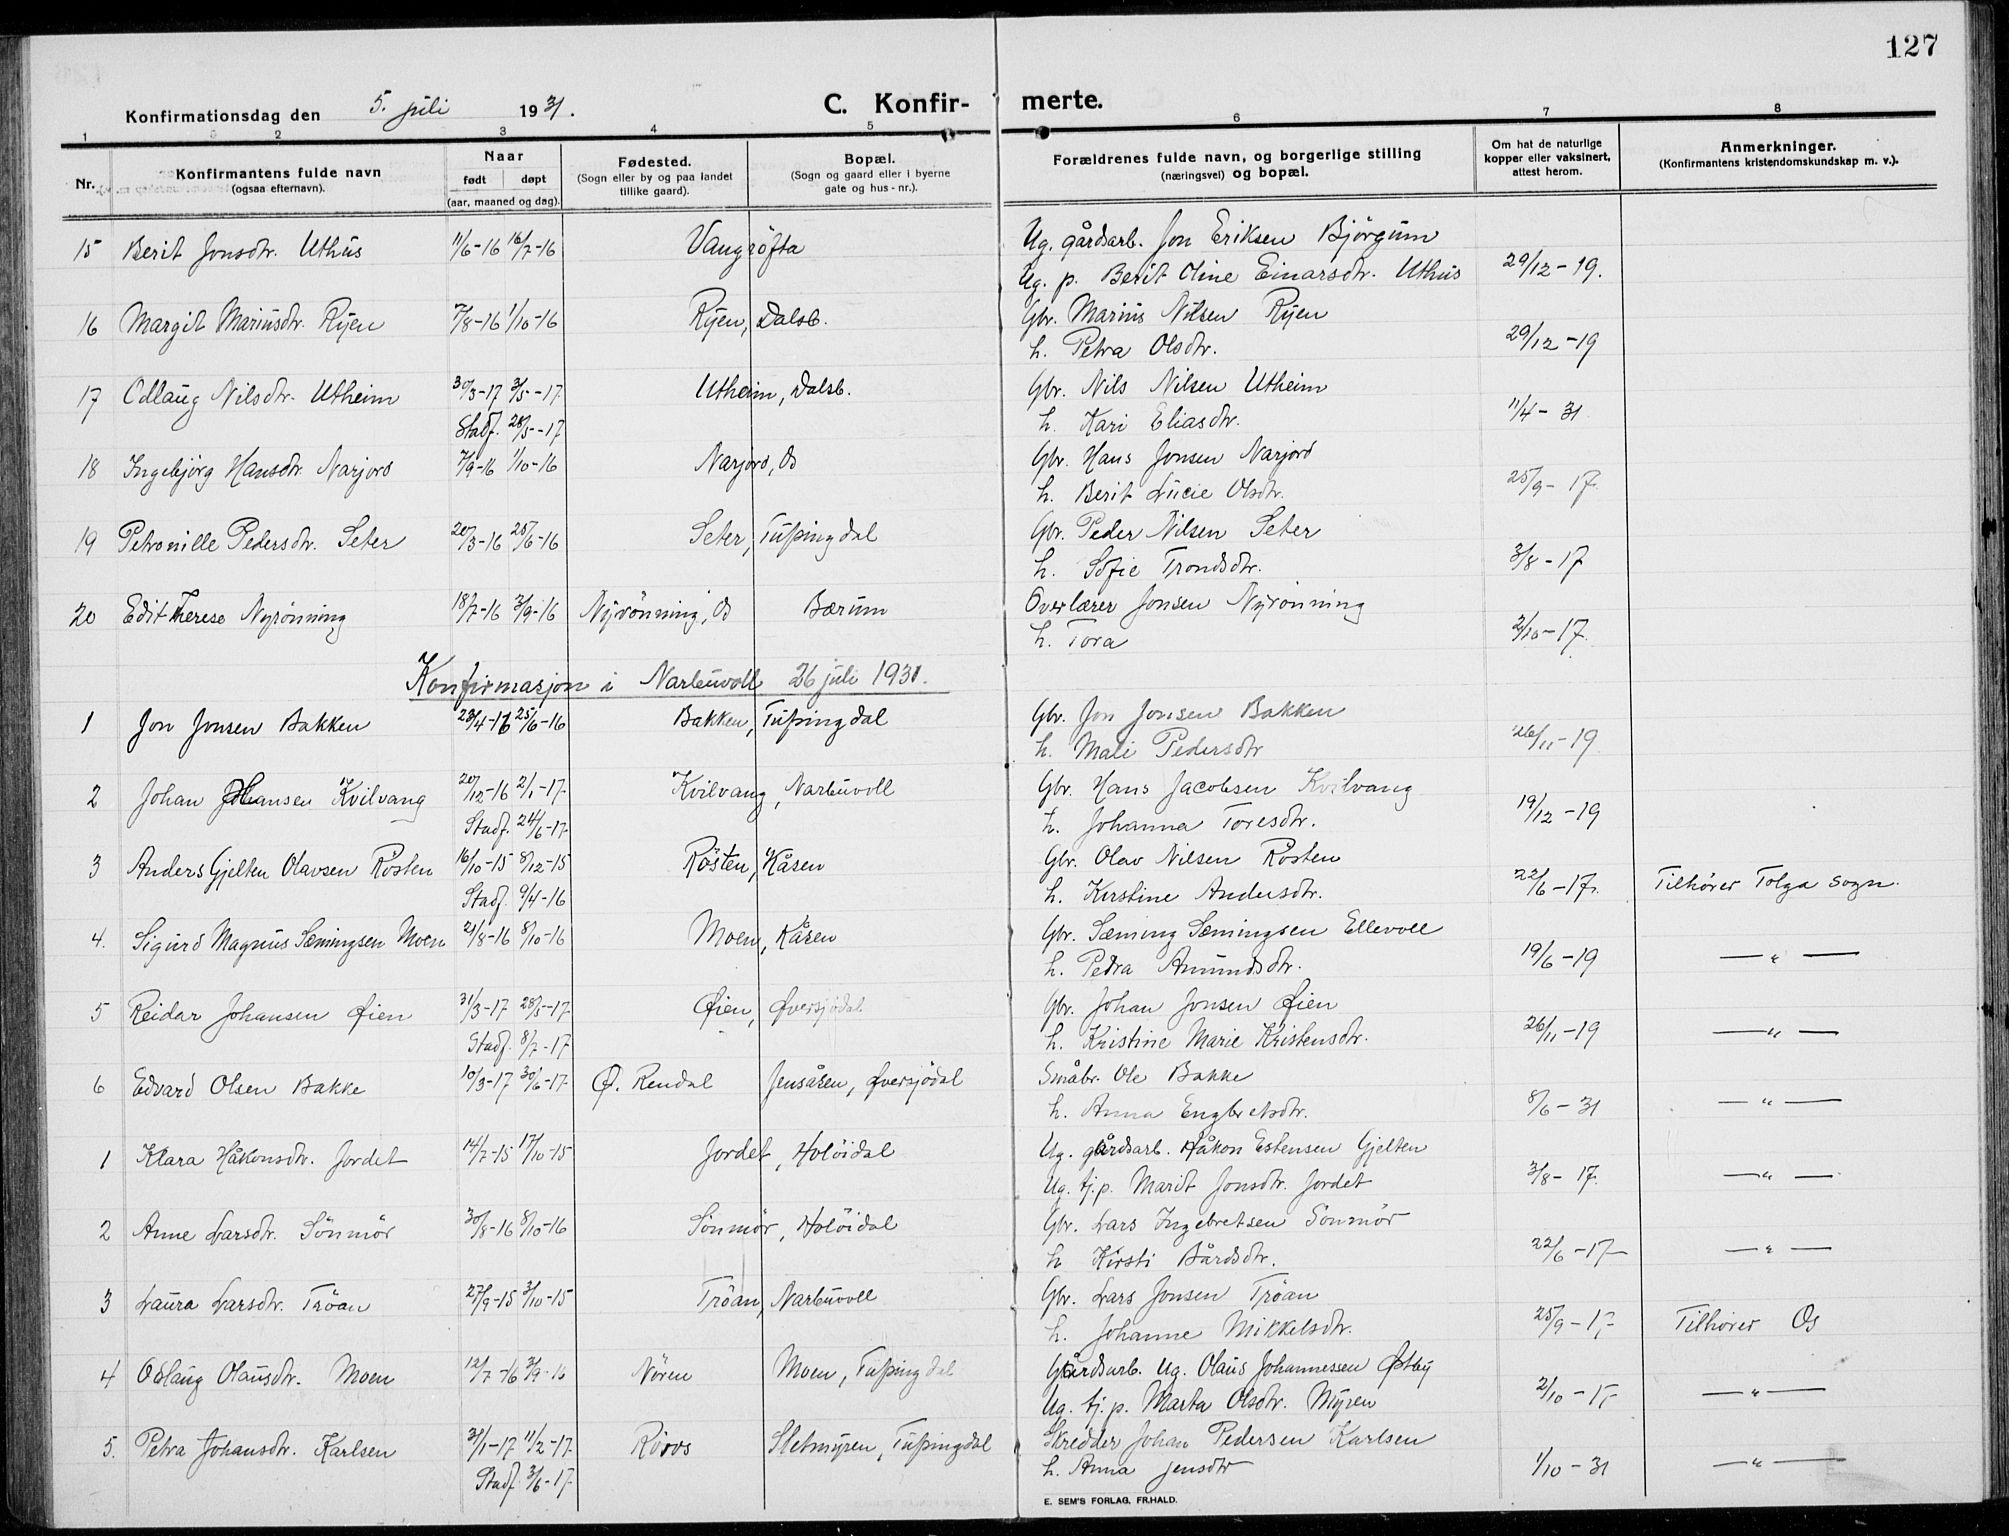 127
Konfirmationsdag den 5. juli 1931. C. Konfir- merte.
1 2 3 4 5 6 7 8
Nr. Konfirmantens fulde navn (ogsaa efternavn). Naar født døpt (aar, maaned og dag). Fødested. (Sogn eller by og paa landet tillike gaard). Bopæl. (Sogn og gaard eller i byerne gate og hus-nr.). Forældrenes fulde navn, og borgerlige stilling (næringsvei) og bopæl. Om hat de naturlige kopper eller vaksinert, attest herom. Anmerkninger. (Konfirmantens kristendomskundskap m. v.).
15 Berit Jonsdtr. Uthus 11/6-16 16/7-16 Vangröfta Ug. gårdsarb. Jon Eriksen Bjørgum
Ug. p. Berit Oline Einarsdtr. Uthus 29/12-19.
16 Margit Mariusdtr. Ryen 7/8-16 1/10-16 Ryen, Dalsb. Gbr. Marius Nilsen Ryen
h. Petra Olsdtr. 29/12-19
17 Odlaug Nilsdtr. Utheim 30/3-17 3/5-17 Utheim, Dalsb. Gbr. Nils Nilsen Utheim
Stadf. 28/5-17 h. Kari Eliasdtr. 11/4-31
18 Ingebjörg Hansdtr. Narjord 7/9-16 1/10-16 Narjord, Os Gbr. Hans Jonsen Narjord
h. Berit Lucie Olsdtr. 25/9-17.
19 Petronille Pedersdtr. Seter 20/3-16 25/6-16 Seter, Tufsingdal Gbr. Peder Nilsen Seter
h. Sofie Trondsdtr. 3/8-17
20 Edit Therese Nyrönning 18/7-16 3/9-16 Nyrönning, Os Bærum Overlærer Jonsen Nyrönning
h. Tora 2/10-17.
Konfirmasjon i Narbuvoll 26 juli 1931.
1 Jon Jonsen Bakken 23/4-16 25/6-16 Bakken, Tufsingdal Gbr. Jon Jonsen Bakken
h. Mali Pedersdtr 26/11-19
2 Johan Johansen Kvilvang 20/12-16 2/1-17 Kvilvang, Narbuvoll Gbr. Hans Jacobsen Kvilvang
Stadf. 24/6-17 h. Johanna Toresdtr. 19/12-19
3 Anders Gjelten Olavsen Rösten 16/10-15 8/12-15 Rösten, Kåsen Gbr. Olav Nilsen Rösten
Stadf. 9/4-16 h. Kirstine Andersdtr. 22/6-17. Tilhører Tolga sogn.
4. Sigurd Magnus Sæmingsen Moen 21/8-16 8/10-16 Moen, Kåsen Gbr. Sæming Sæmingsen Ellevoll
h. Pedra Amundsdtr. 19/6-19 —"—
5 Reidar Johansen Øien 31/3-17 28/5-17 Øien, Øversjödal Gbr. Johan Jonsen Øien
Stadf. 8/7-17 h. Kristine Marie Kristensdtr. 26/11-19 —"—
6 Edvard Olsen Bakke 10/3-17 30/6-17 Ø. Rendal Jensåsen, Øversjödal Småbr. Ole Bakke
h. Anna Engbretsdtr. 8/6-31 —"—
1 Klara Håkonsdtr. Jordet 14/7-15 17/10-15 Jordet, Holöidal Ug. gårdsarb. Håkon Estensen Gjelten
Ug. tj.p. Marit Jonsdtr. Jordet 3/8-17. —"—
2 Anne Larsdtr. Sönmör 30/8-16 8/10-16 Sönmör, Holöidal Gbr. Lars Ingebretsen Sönmör
h Kirsti Bårdsdtr. 22/6-17 —"—
3 Laura Larsdtr. Tröan 27/9-15 3/10-15 Tröan, Narbuvoll Gbr. Lars Jonsen Tröan
h. Johanne Mikkelsdtr. 25/9-17 Tilhører Os
4 Odlaug Olausdtr. Moen 12/7-16 3/9-16 Nören Moen, Tufsingdal Gårdsarb. Ug. Olaus Johannessen Østby
Ug. tj. p. Marta Olsdtr. Myren 2/10-17 —"—
5. Petra Johansdtr. Karlsen 31/1-17 11/2-17 Röros Sletmyren, Tufsingdal Skredder Johan Pedersen Karlsen
Stadf. 3/6-17 h. Anna Jensdtr 1/10-31 —"—
E. SEM'S FORLAG, FR.HALD.